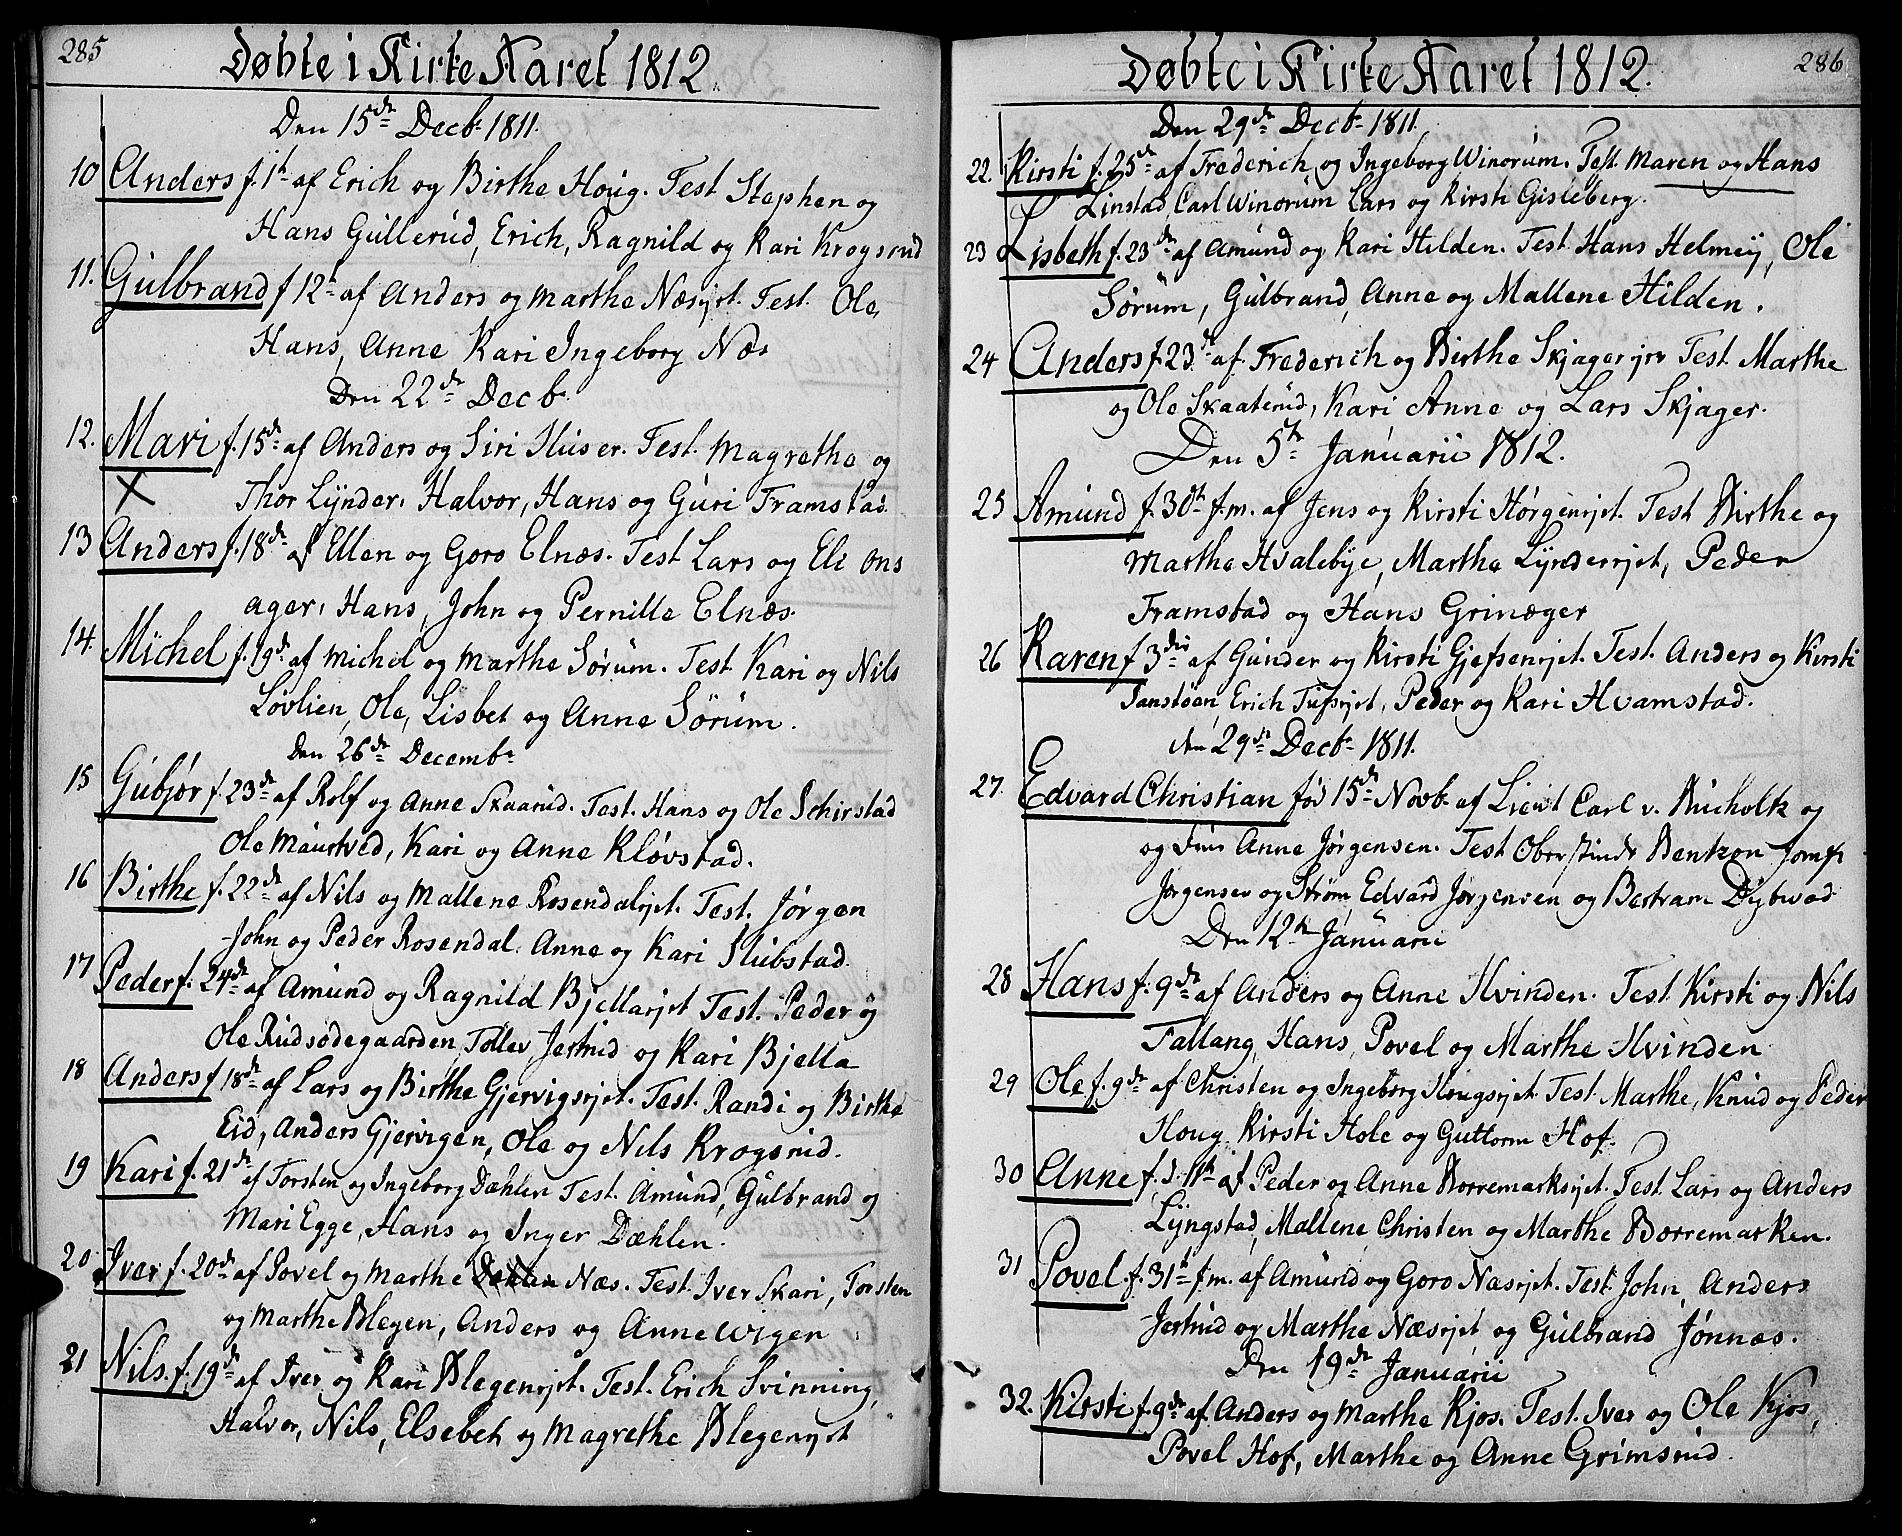 285
Døbte i Kirke Aaret 1812.
Den 15de Decb. 1811.
10 Anders f. 1ste af Erich og Birthe Houg. Test Stephen og
Hans Gullerud, Erich, Ragnild og Kari Krogsrud
11. Gulbrand f 12te af Anders og Marthe Næsejet. Test. Ole,
Hans, Anne Kari Ingeborg Næs
Den 22de Decb.
12. Mari f. 15de af Anders og Siri Huser. Test. Magrethe og
Thor Lynder. Halvor, Hans og Guri Framstad.
13 Anders f. 18de af Ellen og Goro Elnæs. Test Lars og Eli Ons
ager, Hans, John og Pernille Elnæs.
14. Michel f. 19de af Michel og Marthe Sørum. Test Kari og Nils
Løvlien, Ole, Lisbet og Anne Sørum.
Den 26de Decemb.
15 Gubjør f. 23de af Rolf og Anne Skaarud. Test. Hans og Ole Schirstad
Ole Maurtved, Kari og Anne Kløvstad.
16 Birthe f. 22de af Nils og Mallene Rosendalejet. Test. Jørgen
John og Peder Rosendal. Anne og Kari Slubstad.
17 Peder f. 24de af Amund og Ragnild Bjellaejet Test. Peder og
Ole Rudsødegaarden, Tollev Jertrud og Kari Bjella
18 Anders f 18de af Lars og Birthe Gjervigsejet. Test. Randi og Birthe
Eid, Anders Gjervigen, Ole og Nils Krogsrud.
19 Kari f. 21de af Torsten og Ingeborg Dæhlen Test. Amund, Gulbrand og
Mari Egge, Hans og Inger Dæhlen.
20 Iver f. 20de af Povel og Marthe Dæhlen Næs. Test. Iver Skari, Torsten
og Marthe Blegen, Anders og Anne Wigen
21 Nils. f. 19de af Iver og Kari Blegenejet. Test. Erich Svinning,
Halvor, Nils, Elsebet og Magrethe Blegenejet
286
Døbte i Kirke Aaret 1812.
Den 29de Decb. 1811.
22. Kirsti f. 25de af Frederich og Ingeborg Winorum. Test. Maren og Hans
Linstad, Carl Winorum Lars og Kirsti Gisleberg.
23 Lisbeth f. 23de af Amund og Kari Hilden. Test. Hans Helmey, Ole
Sørum, Gulbrand, Anne og Mallene Hilden.
24 Anders f. 23de af Frederich og Birthe Skjagerejet Test. Marthe
og Ole Skaaterud, Kari Anne og Lars Skjager.
Den 5te Januarii 1812.
25 Amund f. 30te f.m. af Jens og Kirsti Hørgenejet. Test Birthe og
Marthe Hvalebye, Marthe Lynderejet, Peder
Framstad og Hans Grinæger
26 Karen f 3die af Gunder og Kirsti Gjefsenejet. Test. Anders og Kirsti
Tanstøen, Erich Tufsejet, Peder og Kari Hvamstad.
den 29de Decb. 1811.
27. Edvard Christian fød 15de Novb. af Lieut Carl v. Bucholtz og
og Anne Jørgensen. Test Bentzon Jomfr
Jørgensen og Strøm, Edvard Jørgensen og Bertram Dybwad
Den 12te Januarii
28 Hans f. 9de af Anders og Anne Hvinden. Test. Kirsti og Nils
Fallang, Hans, Povel og Marthe Hvinden
29 Ole f. 9de af Christen og Ingeborg Hougsejet. Test. Marthe, Knud og Peder
Houg, Kirsti Hole og Guttorm Hof.
30 Anne f. d. 11te af Peder og Anne Borremarksejet. Test. Lars og Anders
Lyngstad, Mallene Christen og Marthe Borremarken.
31 Povel. f. 31te f.m. af Amund og Goro Næsejet. Test. John, Anders
Jertrud og Marthe Næsejet og Gulbrand Jønnæs.
Den 19de Januarii
32. Kirsti f. 9de af Anders og Marthe Kjos. Test. Iver og Ole Kjos,
Povel Hof, Marthe og Anne Grimsrud.